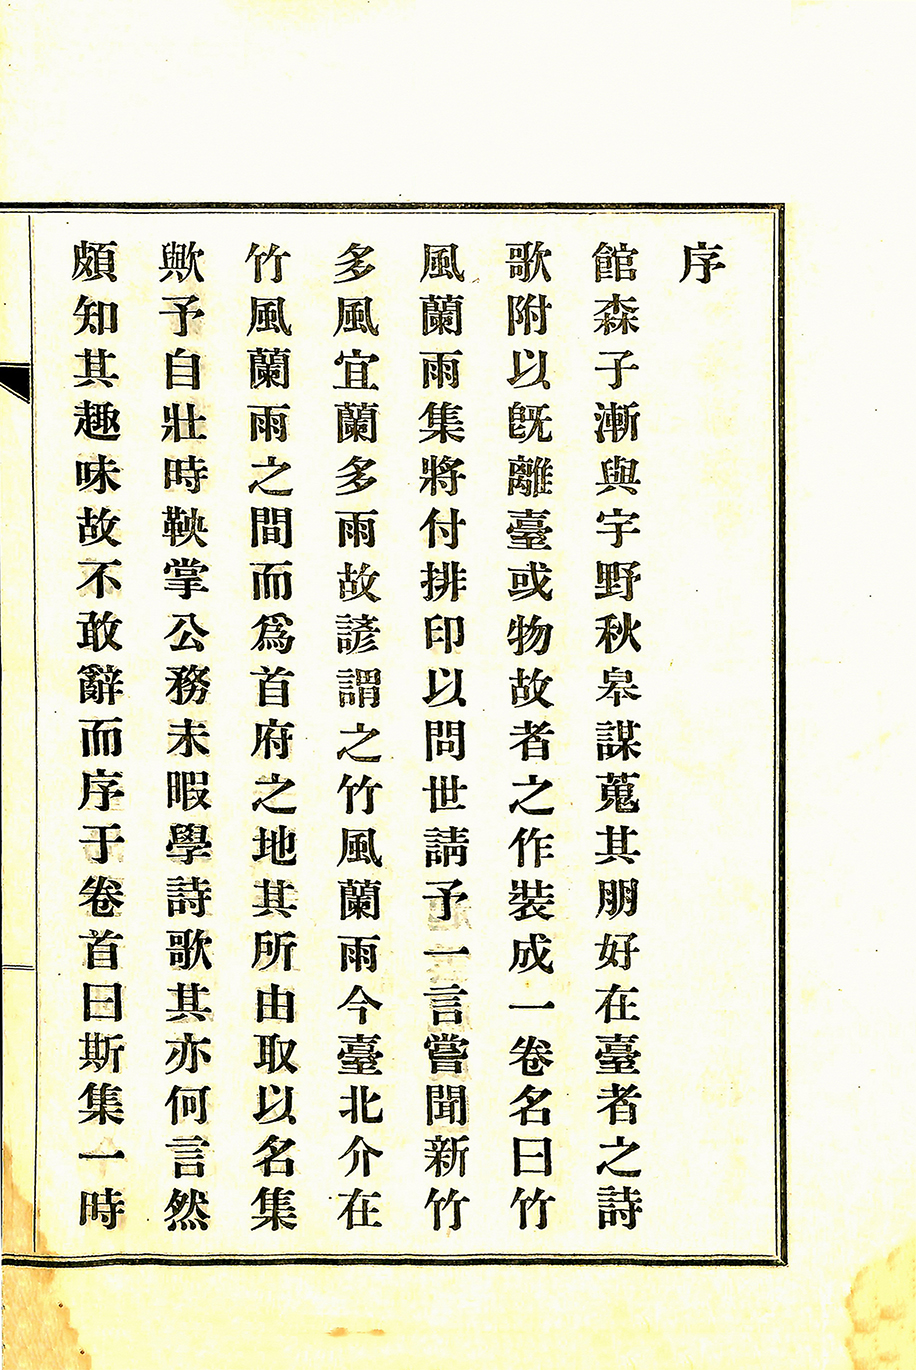 序
館森子漸與宇野秋皐謀蒐其朋好在臺者之詩
歌附以旣離臺或物故者之作裝成一卷名曰竹
風蘭雨集將付排印以問世請予一言嘗聞新竹
多風宜蘭多雨故諺謂之竹風蘭雨今臺北介在
竹風蘭雨之間而爲首府之地其所由取以名集
歟予自壯時鞅掌公務未暇學詩歌其亦何言然
頗知其趣味故不敢辭而序于卷首曰斯集一時